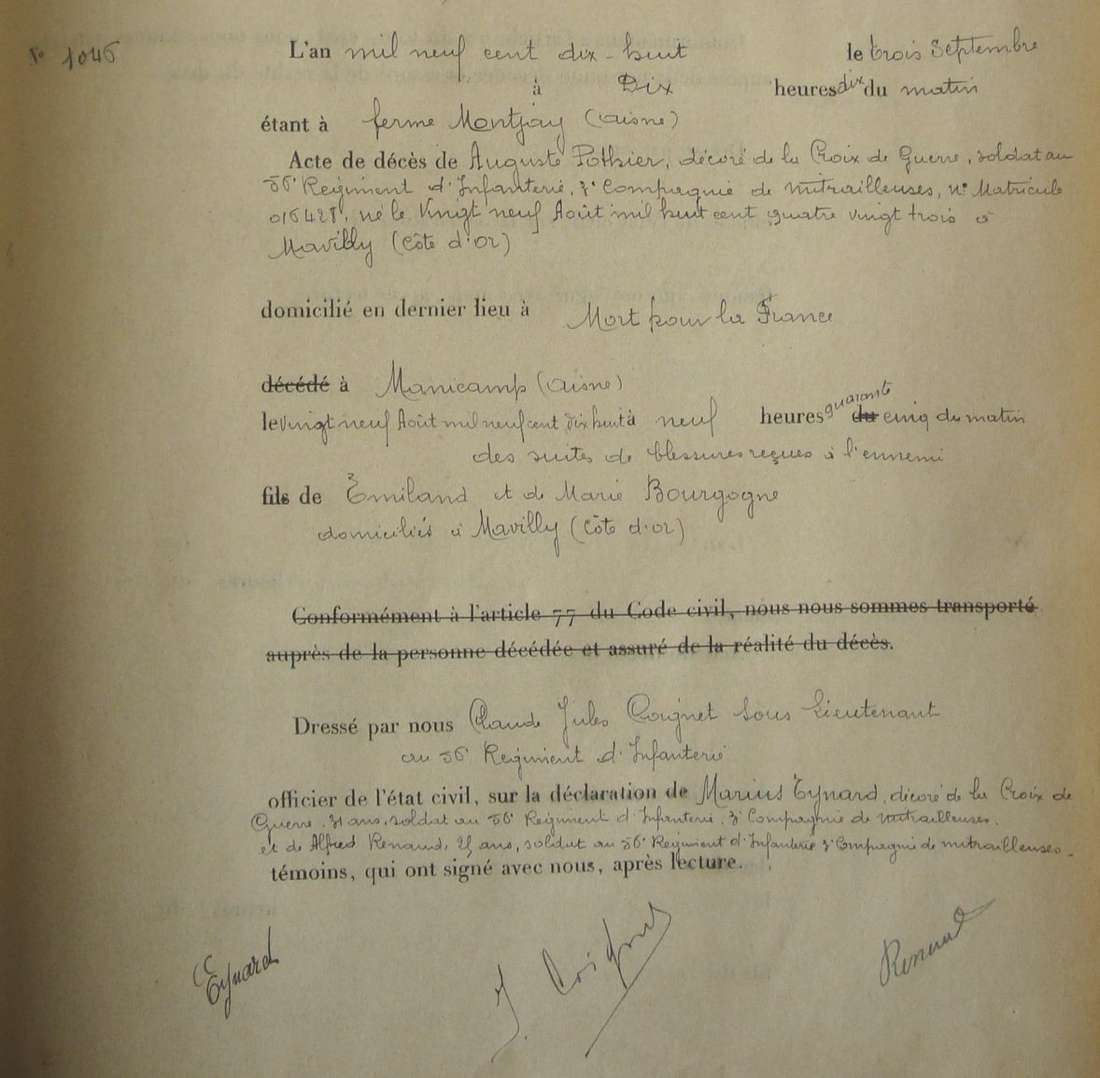 No 1046
L'an mil neuf cent dix-huit le trois Septembre
à Dix heures dix du matin
étant à ferme Montjay (Aisne)
Acte de décès de Auguste Pothier, décoré de la Croix de Guerre, soldat au
56e Regiment d'Infanterie, 3e Compagnie de mitrailleuses, No Matricule
né le Vingt neuf Août mil huit cent quatre vingt trois à
Mavilly (Côte d'or)
domicilié en dernier lieu à Mort pour la France
décédé à Manicamp (Aisne)
le vingt neuf Août mil neuf cent dix huit à neuf heures quarante du cinq du matin
des suites de blessures reçues à l'ennemi
fils de Emiland et de Marie Bourgogne
domiciliés à Mavilly (Côte d'or)
Conformément à l'article 77 du Code civil, nous nous sommes transporté
auprès de la personne décédée et assuré de la réalité du décès.
Dressé par nous Claude Jules Coignet Sous Lieutenant
au 56e Regiment d'Infanterie
officier de l'état civil, sur la déclaration de Marius Eynard, décoré de la Croix de
Guerre, 31 ans, soldat au 56e Regiment d'Infanterie, 3e Compagnie de mitrailleuses,
et de Alfred Renaud, ans, soldat au 56e Regiment d'Infanterie 3e Compagnie de mitrailleuses.
témoins, qui ont signé avec nous, après lecture.
Eynard J. Coignet Renaud